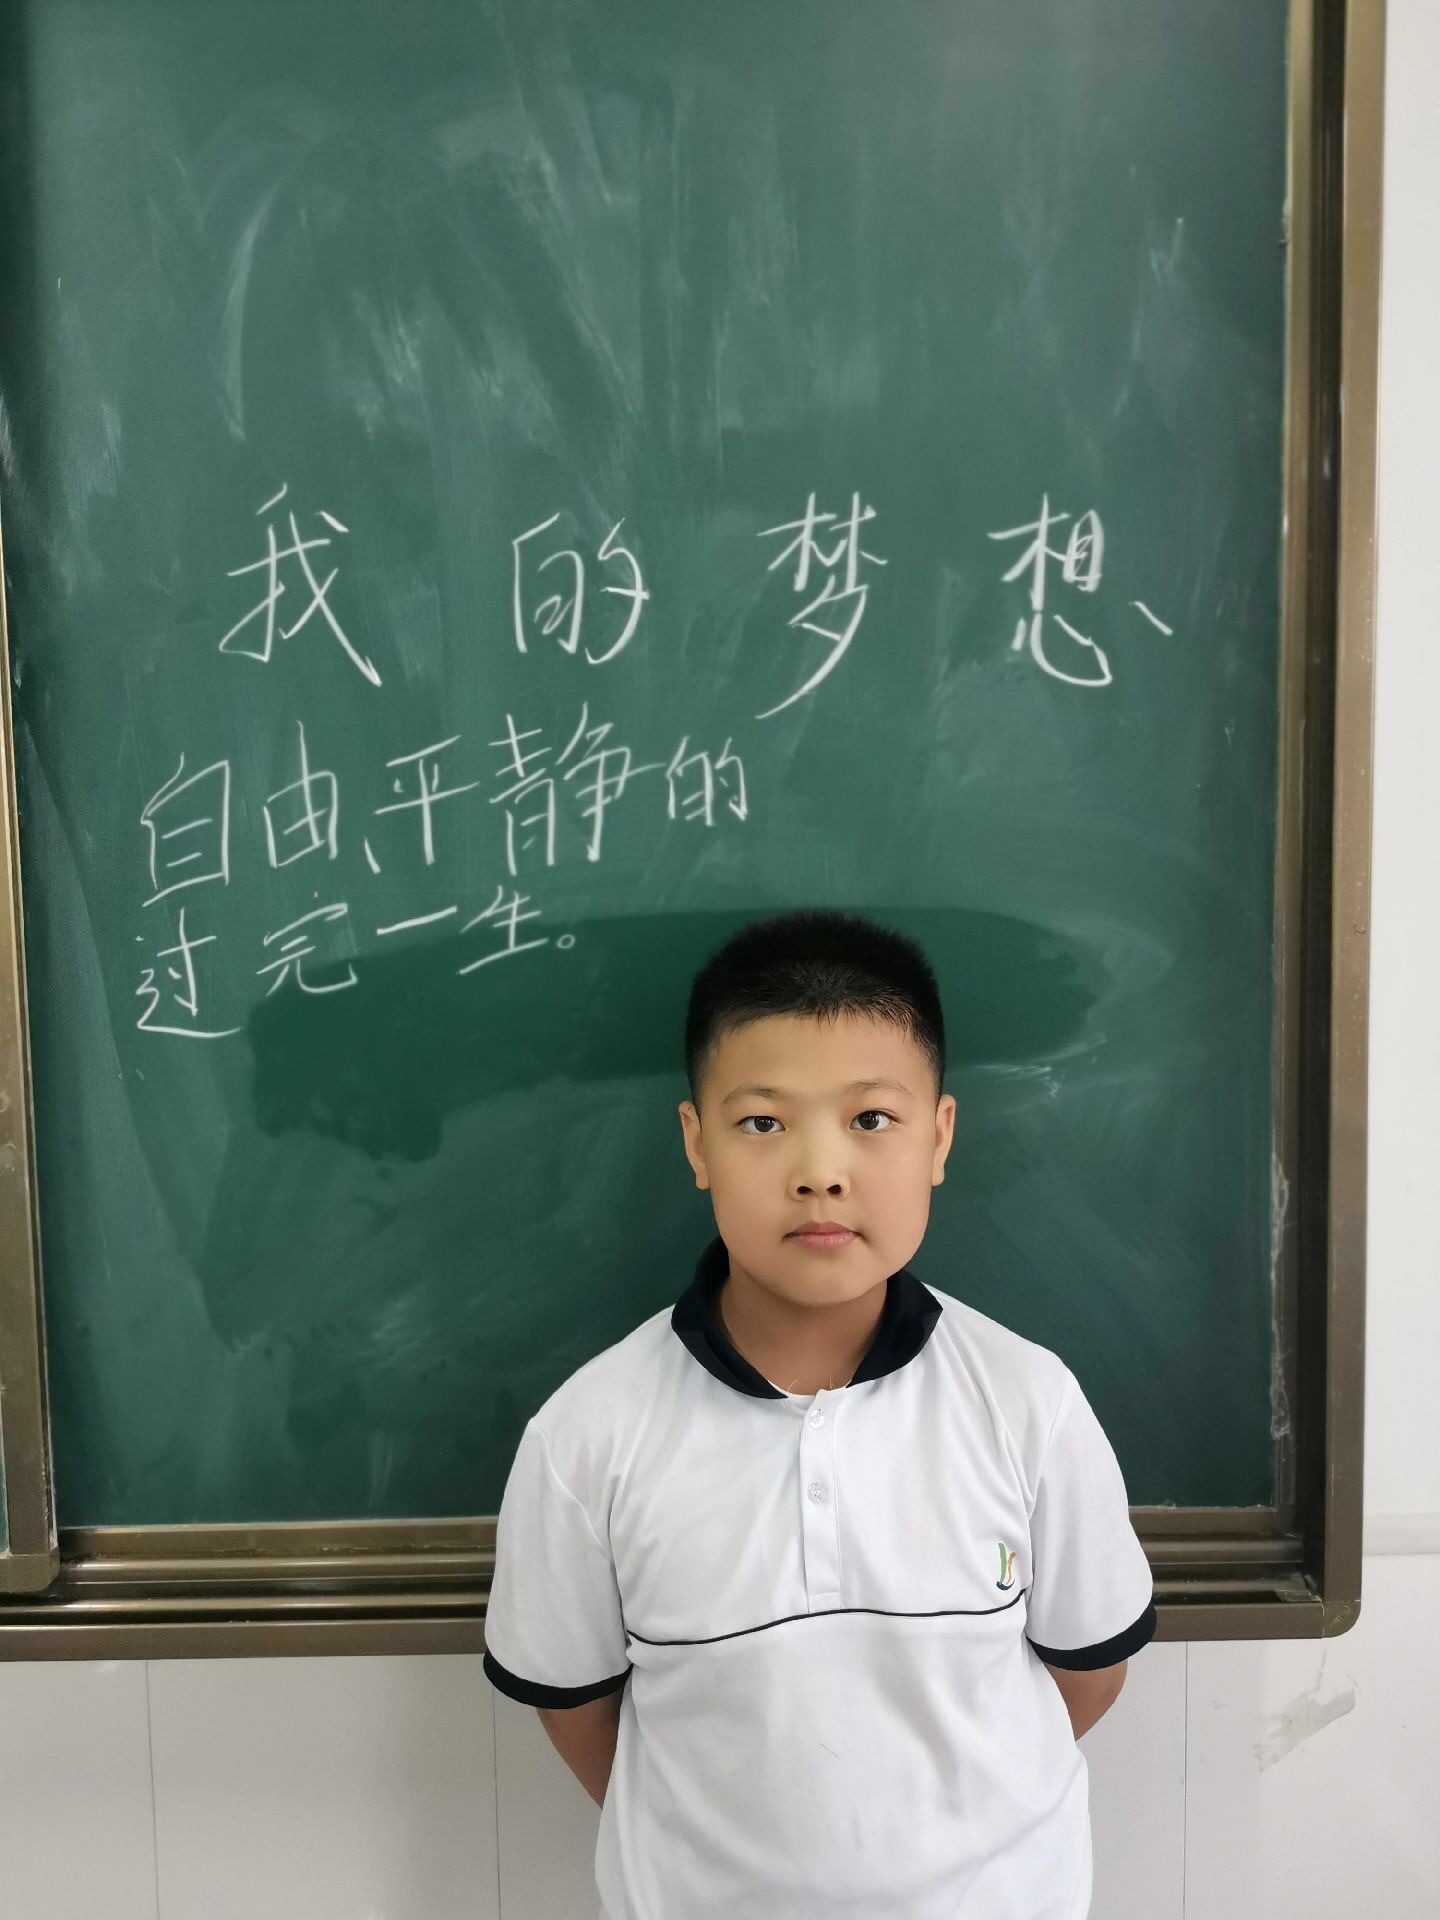 我的梦想
自由、平静的
过完一生。